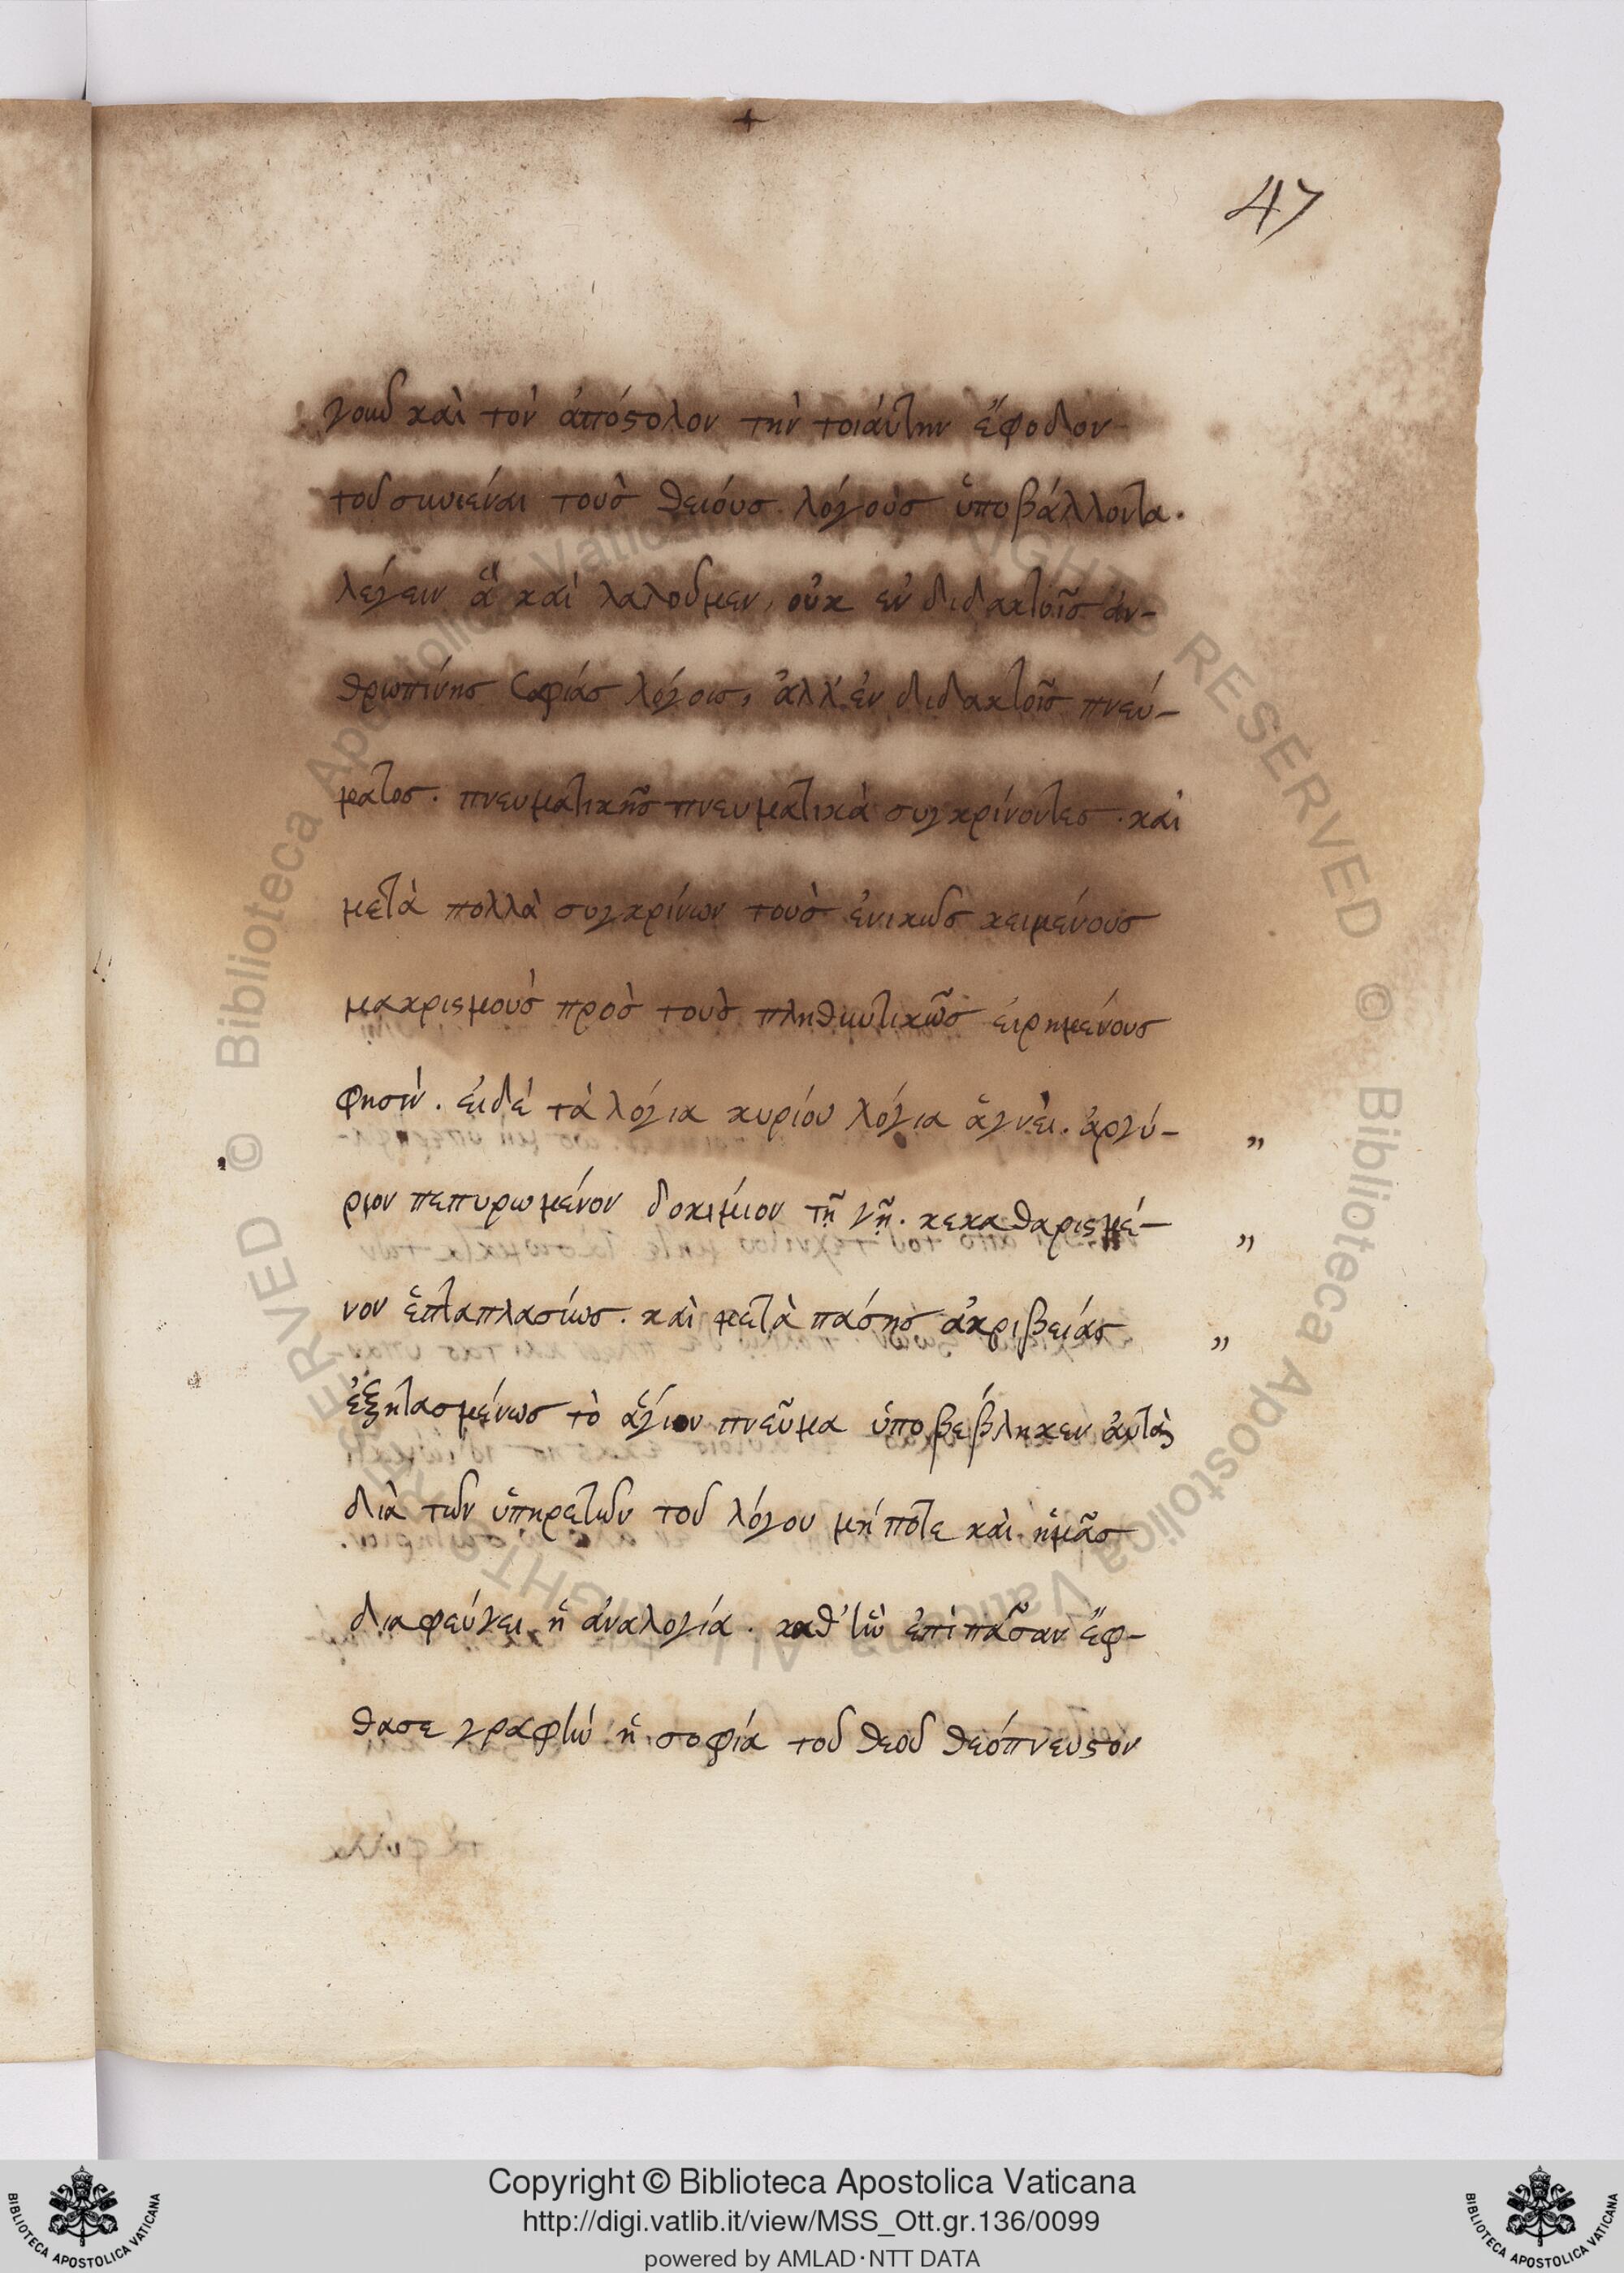 47
γοῦ καὶ τὸν ἀπόστολον τὴν τοιάυτην ἔφοδον
τοῦ συνιέναι τοὺσ θειόυσ λόγουσ ὑποβάλλοντα.
λέγειν ἃ καὶ λαλοῦμεν, οὐκ ἐν διδακτοῖσ ἀν-
θρωπίνησ σοφίασ λόγοισ, ἀλλ' ἐν διδακτοῖσ πνεύ-
ματοσ. πνευματικῆσ πνευματικὰ συγκρίνοντεσ. καὶ
μετὰ πολλὰ συγκρίνων τοὺσ ἑνικῶσ κειμένουσ
μακρισμοὺσ πρὸσ τοὺσ πληθυντικῶσ ἐιρημένουσ
φησίν. ἐιδὲ τὰ λόγια κυρίου λόγια ἁγνὰ. ἀργύ- „
ριον πεπυρωμένον δοκιμιον τῆ γῆ. κεκαθαρισμέ- „
νον ἑπταπλασίωσ. καὶ μετὰ πάσησ ἀκριβείασ „
ἐξητασμένωσ τὸ ἅγιον πνεῦμα ὑποβέβληκεν ἀυτὰ
διὰ τῶν ὑπηρετῶν τοῦ λόγου μήποτε καὶ ἡμᾶσ
διαφεύγει ἡ ἀναλογία. καθ' ἣν ἐπὶ πᾶσαν ἔφ-
θασε γραφὴν ἡ σοφία τοῦ θεοῦ θεόπνευστον
Copyright © Biblioteca Apostolica Vaticana
http://digi.vatlib.it/view/MSS_Ott.gr.136/0099
powered by AMLAD·NTT DATA